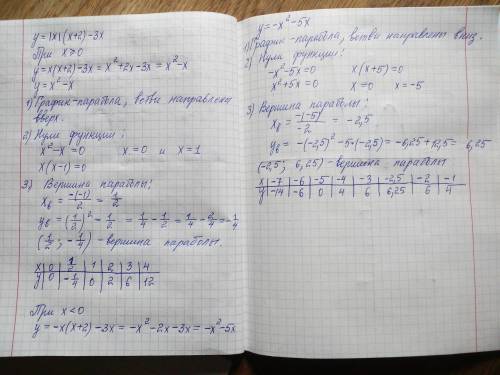 y=|x|(x+2)-3x
При x⩾0
y=x(x+2)-3x=x²+2x-3x=x²-x
y=x²-x
1) График-парабола, ветви направлены
вверх.
2) Нули функции:
x²-x=0 x=0 и x=1
x(x-1)=0
3) Вершина параболы:
xв = -(-1)/2 = 1/2
yв=(1/2)²-1/2=1/4-1/2=1/4-2/4=-1/4
(1/2; -1/4)-вершина параболы.
x | 0 | 1/2 | 1 | 2 | 3 | 4
y | 0 | -1/4 | 0 | 2 | 6 | 12
При x<0
y=-x(x+2)-3x=-x²-2x-3x=-x²-5x
y=-x²-5x
1) График-парабола, ветви направлены вниз.
2) Нули функции:
-x²-5x=0 x(x+5)=0
x²+5x=0 x=0 x=-5
3) Вершина параболы:
xв = -(-5)/-2 = -2,5
yв=-(-2,5)²-5·(-2,5)=-6,25+12,5=6,25
(-2,5; 6,25)-вершина параболы
x | -7 | -6 | -5 | -4 | -3 | -2,5 | -2 | -1
y | -14 | -6 | 0 | 4 | 6 | 6,25 | 6 | 4